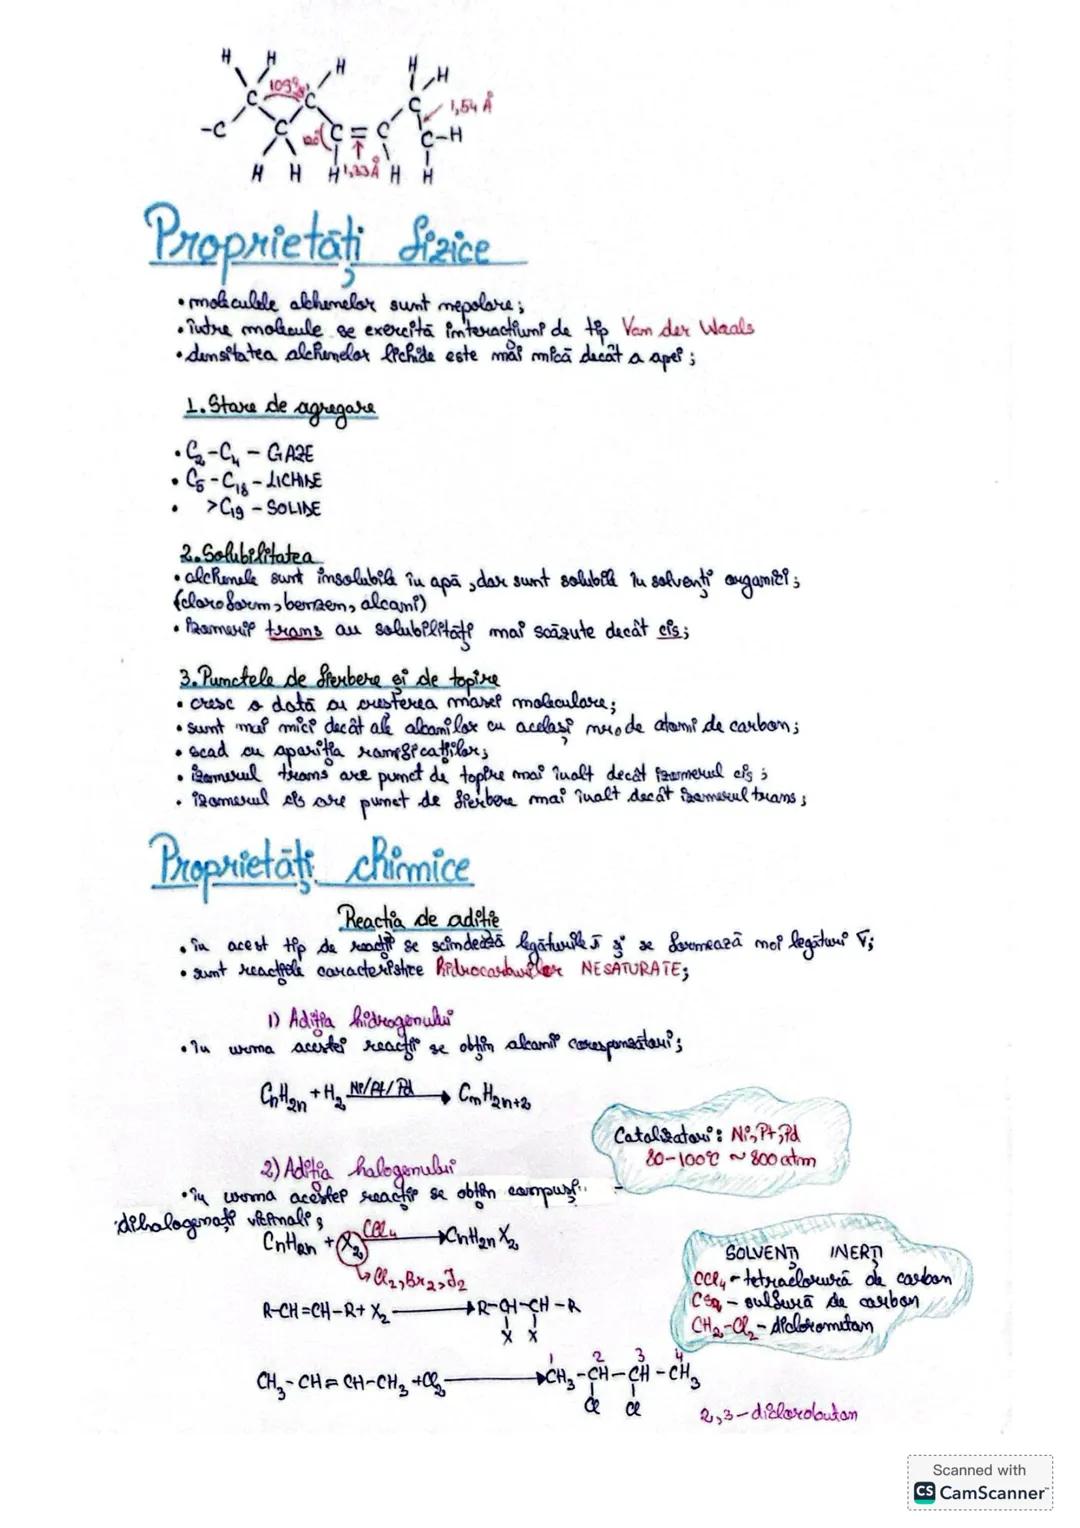 H H H H H
109° C C C 1,54 Å
-C C 120° C = C C-H
H H H 1,33Å H H
Proprietăți fizice
• moleculele alchenelor sunt nepolare;
• între molecule se exercită interacțiuni de tip Van der Waals
• densitatea alchenelor lichide este mai mică decât a apei;
1. Stare de agregare
• C2-C4 - GAZE
• C5-C18 - LICHIDE
• >C19 - SOLIDE
2. Solubilitatea
• alchenele sunt insolubile în apă, dar sunt solubile în solvenți organici;
(cloroform, benzen, alcani)
• izomerii trans au solubilități mai scăzute decât cis;
3. Punctele de fierbere și de topire
• cresc o dată cu creșterea masei moleculare;
• sunt mai mici decât ale alcanilor cu același nr. de atomi de carbon;
• scad cu apariția ramificațiilor;
• izomerul trans are punct de topire mai înalt decât izomerul cis;
• izomerul cis are punct de fierbere mai înalt decât izomerul trans;
Proprietăți chimice
Reacția de adiție
• în acest tip de reacții se scindează legăturile π și se formează noi legături σ;
• sunt reacțiile caracteristice hidrocarburilor NESATURATE;
1) Adiția hidrogenului
• În urma acestei reacții se obțin alcanii corespunzători;
CnH2n + H2 Ni/Pt/Pd → CnH2n+2
Catalizatori: Ni, Pt, Pd
80-100°C ~ 800 atm
2) Adiția halogenului
• în urma acestei reacții se obțin compuși
dihalogenați vicinali;
CnH2n + X2 CCl4 → CnH2n X2
↳ Cl2, Br2, I2
SOLVENȚI INERȚI
CCl4 - tetraclorură de carbon
CS2 - sulfură de carbon
CH2-Cl2 - diclorometan
R-CH=CH-R + X2 → R-CH-CH-R
X X
1 2 3 4
CH3-CH=CH-CH3 + Cl2 → CH3-CH-CH-CH3
Cl Cl
2,3-diclorobutan
Scanned with
CS CamScanner